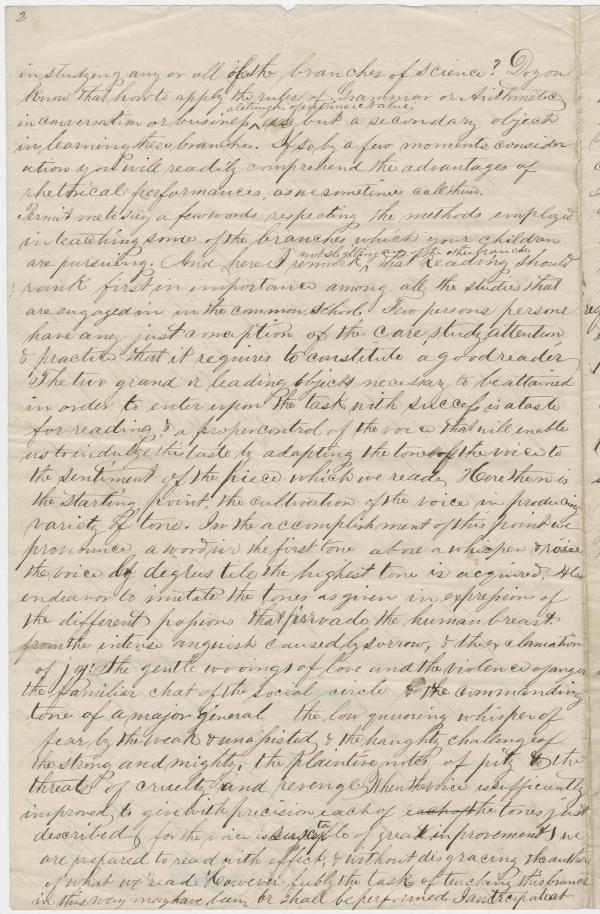 2
in studying any or all of the branches of science? Do you
know that how to apply the rules of Grammar or Arithmetic
although of intrinsic value,
in conversation or business, is but a secondary object
in learning these branches. If so, by a few moments consider
ation you will readily comprehend the advantages of
rhetorical performances, as we sometimes call them.
Permit me to say a few words respecting the methods employed
in teaching some of the branches which your children
not slighting any of the other branches
are pursuing. And here I remark, that Reading should
rank first in importance among all the studies that
are engaged in in the common school. Few persons persons
have any just conception of the care, study, attention
& practice that it requires to constitute a good reader
The two grand or leading objects necessary to be attained
in order to enter upon the task with success, is a taste
for reading, & a proper control of the voice that will enable
us to indulge this taste by adapting the tone of the voice to
the sentiment of the piece which we read. Here then is
the starting point, the cultivation of the voice in producing
variety of tone. In the accomplishment of this point we
pronounce a word in the first tone above a whisper & raise
the voice by degrees till the highest tone is acquired. Also
endeavor to imitate the tones as given in expression of
the different passions that pervade the human breast
from the intense anguish caused by sorrow, & the exclamation
of joy: the gentle wooings of love and the violence of anger
the familiar chat of the social circle & the commanding
tone of a major general the low quivering whisper of
fear by the weak & unassisted & the haughty challenge of
the strong and mighty, the plaintive notes of pity to the
threats of cruelty and revenge. When the voice is sufficiently
improved to give with precision each of each of the tones just
described, for the voice is susceptible of great improvement, we
are prepared to read with effect, & without disgracing the author
of what we read. However feebly the task of teaching this branch
in this way may have been or shall be performed I anticipate